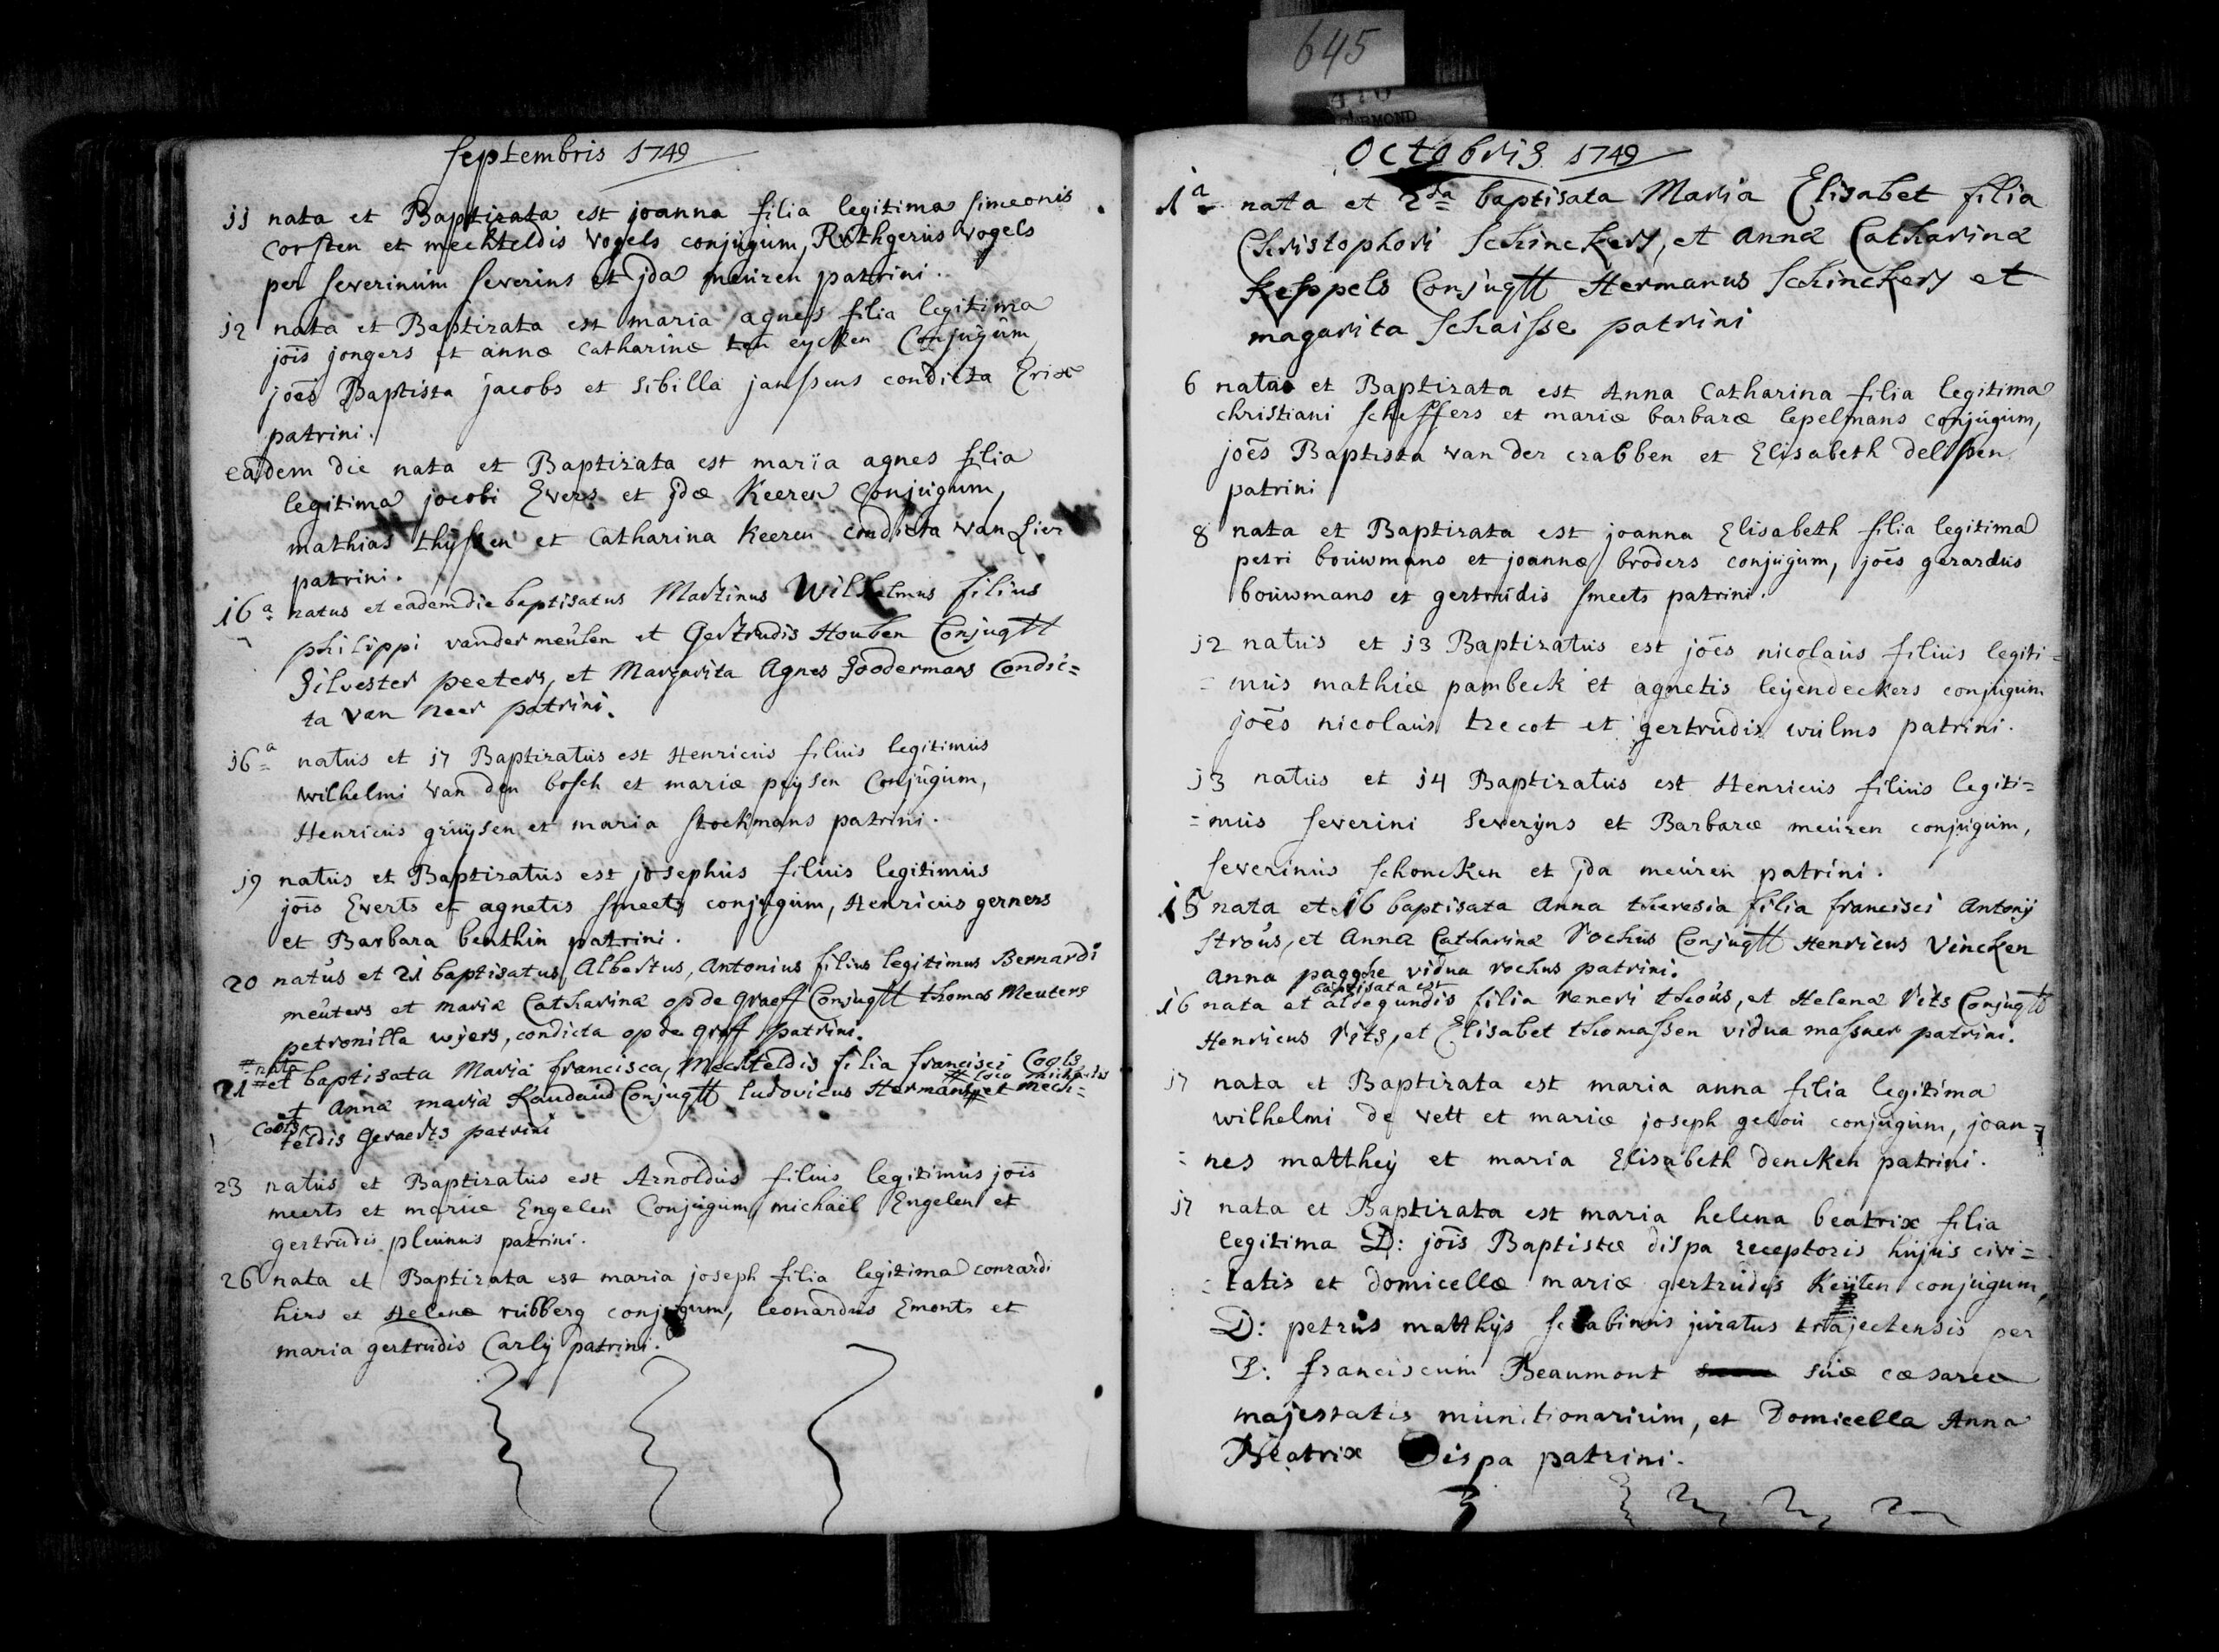 645
RMOND
septembris 1749
11 nata et Baptizata est joanna filia legitima simeonis
corsten et mechteldis vogels conjugum, Rothgerus vogels
per severinum severins et jda meuren patrini.
12 nata et Baptizata est maria agnes filia legitima
jois jongers et annæ catharinæ ten eycken Conjugum,
joes Baptista jacobs et sibilla janssens condicta Erix
patrini.
eadem die nata et Baptizata est maria agnes filia
legitima jocobi Evers et jdæ Keeren Conjugum,
mathias thyssen et Catharina Keeren condicta van Lier
patrini.
16a natus et eadem die baptisatus Martinus Wilhelmus filius
philippi vander meulen et Gertrudis Houben Conjugtt
Silvester peeters, et Margarita Agnes Goodermans Condic=
ta van neer patrini.
16a natus et 17 Baptizatus est Henricus filius legitimus
wilhelmi van den bosch et mariæ peysen Conjugum,
Henricus gruysen et maria stockmans patrini.
19 natus et Baptizatus est josephus filius legitimus
jois Everts et agnetis smeets conjugum, Henricus gerners
et Barbara benthin patrini.
20 natus et 21 baptisatus Albertus, Antonius filius legitimus Bernardi
meuters et mariæ Catharinæ op de graeff Conjugtt thomas Meuters
petronilla wijers, condicta op de graff patrini.
# nata
21 # et baptisata Maria francisca, Mechteldis filia francisci Cools
# loco michaelis
+ Annæ mariæ Kaudaud Conjugtt ludovicus Hermans # et Mech=
Cools
teldis Geraerts patrini
23 natus et Baptizatus est Arnoldus filius legitimus jois
meerts et mariæ Engelen Conjugum, michaël Engelen et
gertrudis pleunus patrini.
26 nata et Baptizata est maria joseph filia legitima conrardi
hirs et Helenæ rubberg conjugum, leonardus Emonts et
maria gertrudis Carly patrini.
Octobris 1749
1a nata et 2da baptisata Maria Elisabet filia
Christophori Schinckers, et Annæ Catharinæ
Keppels Conjugtt Hermanus Schinckers et
magarita Schaisse patrini
6 nata et Baptizata est Anna Catharina filia legitima
christiani scheffers et mariæ barbaræ lepelmans conjugum,
joes Baptista van der crabben et Elisabeth delissen
patrini
8 nata et Baptizata est joanna Elisabeth filia legitima
petri bouwmans et joannæ broders conjugum, joes gerardus
bouwmans et gertrudis smeets patrini.
12 natus et 13 Baptizatus est joes nicolaus filius legiti=
=mus mathiæ pambeck et agnetis leyendeckers conjugum
joes nicolaus trecot et gertrudis wilms patrini.
13 natus et 14 Baptizatus est Henricus filius legiti=
=mus severini Severyns et Barbaræ meuren conjugum,
severinus schoncken et jda meuren patrini.
15 nata et 16 baptisata Anna theresia filia francisci Antonij
Strous, et Annæ Catharinæ Rochus Conjugtt Henricus Vincken
Anna pagghe vidua rochus patrini.
baptisata est
16 nata et aldegundis filia reneri theous, et Helenæ Vits Conjugtt
Henricus Vits, et Elisabet thomassen vidua massner patrini.
17 nata et Baptizata est maria anna filia legitima
wilhelmi de vett et mariæ joseph gelou conjugum, joan=
=nes matthey et maria Elisabeth dencken patrini.
17 nata et Baptizata est maria helena beatrix filia
legitima D: jois Baptistæ dispa receptoris hujus civi=
=tatis et domicellæ mariæ gertrudis Keyten conjugum,
D: petrus matthys scabinus juratus trajectensis per
D: franciscum Beaumont suæ cæsareæ
majestatis munitionarium, et Domicella Anna
Beatrix Dispa patrini.